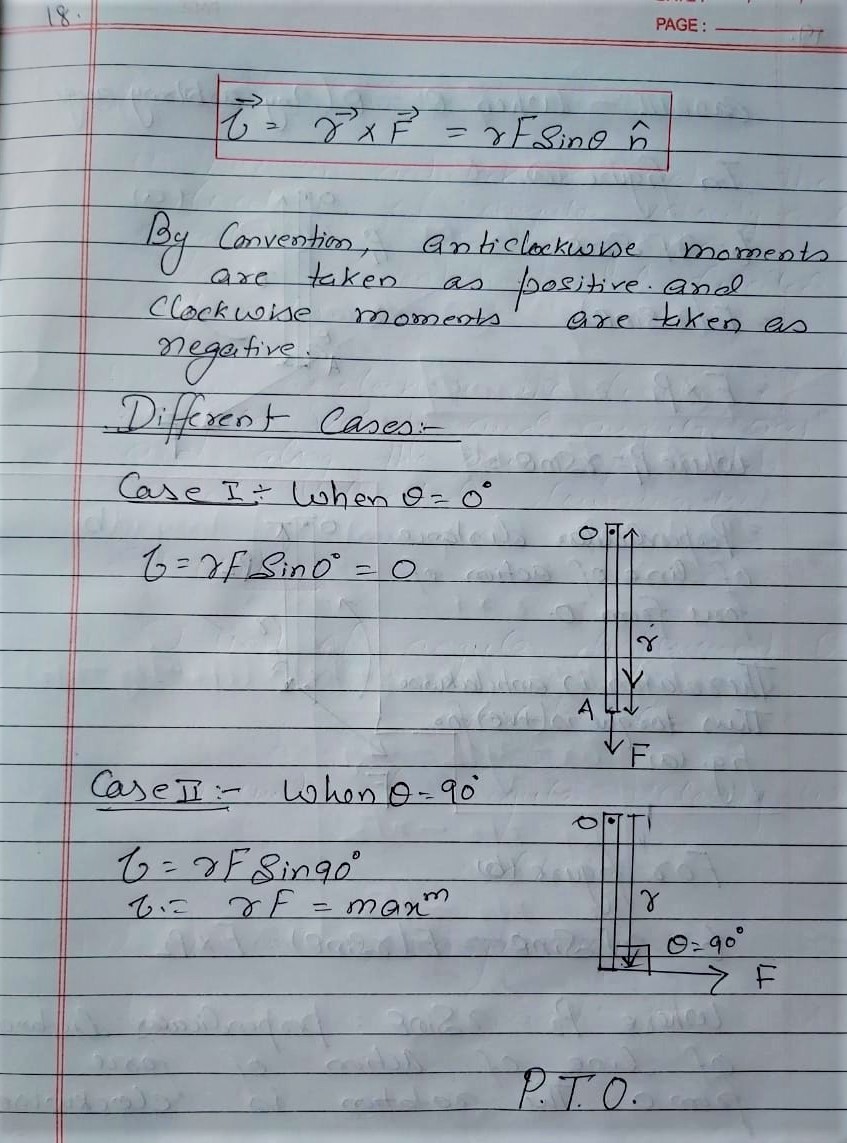 18.
PAGE:
τ⃗ = r⃗ x F⃗ = rF Sinθ n̂
By Convention, anticlockwise moments
are taken as positive. and
Clockwise moments are taken as
negative.
Different Cases:-
Case I ÷ When θ = 0°
τ = rF Sin0° = 0
O
r
A
F
Case II :- When θ = 90°
O
τ = rF Sin90°
τ = rF = maxᵐ
r
θ = 90°
F
P.T.O.